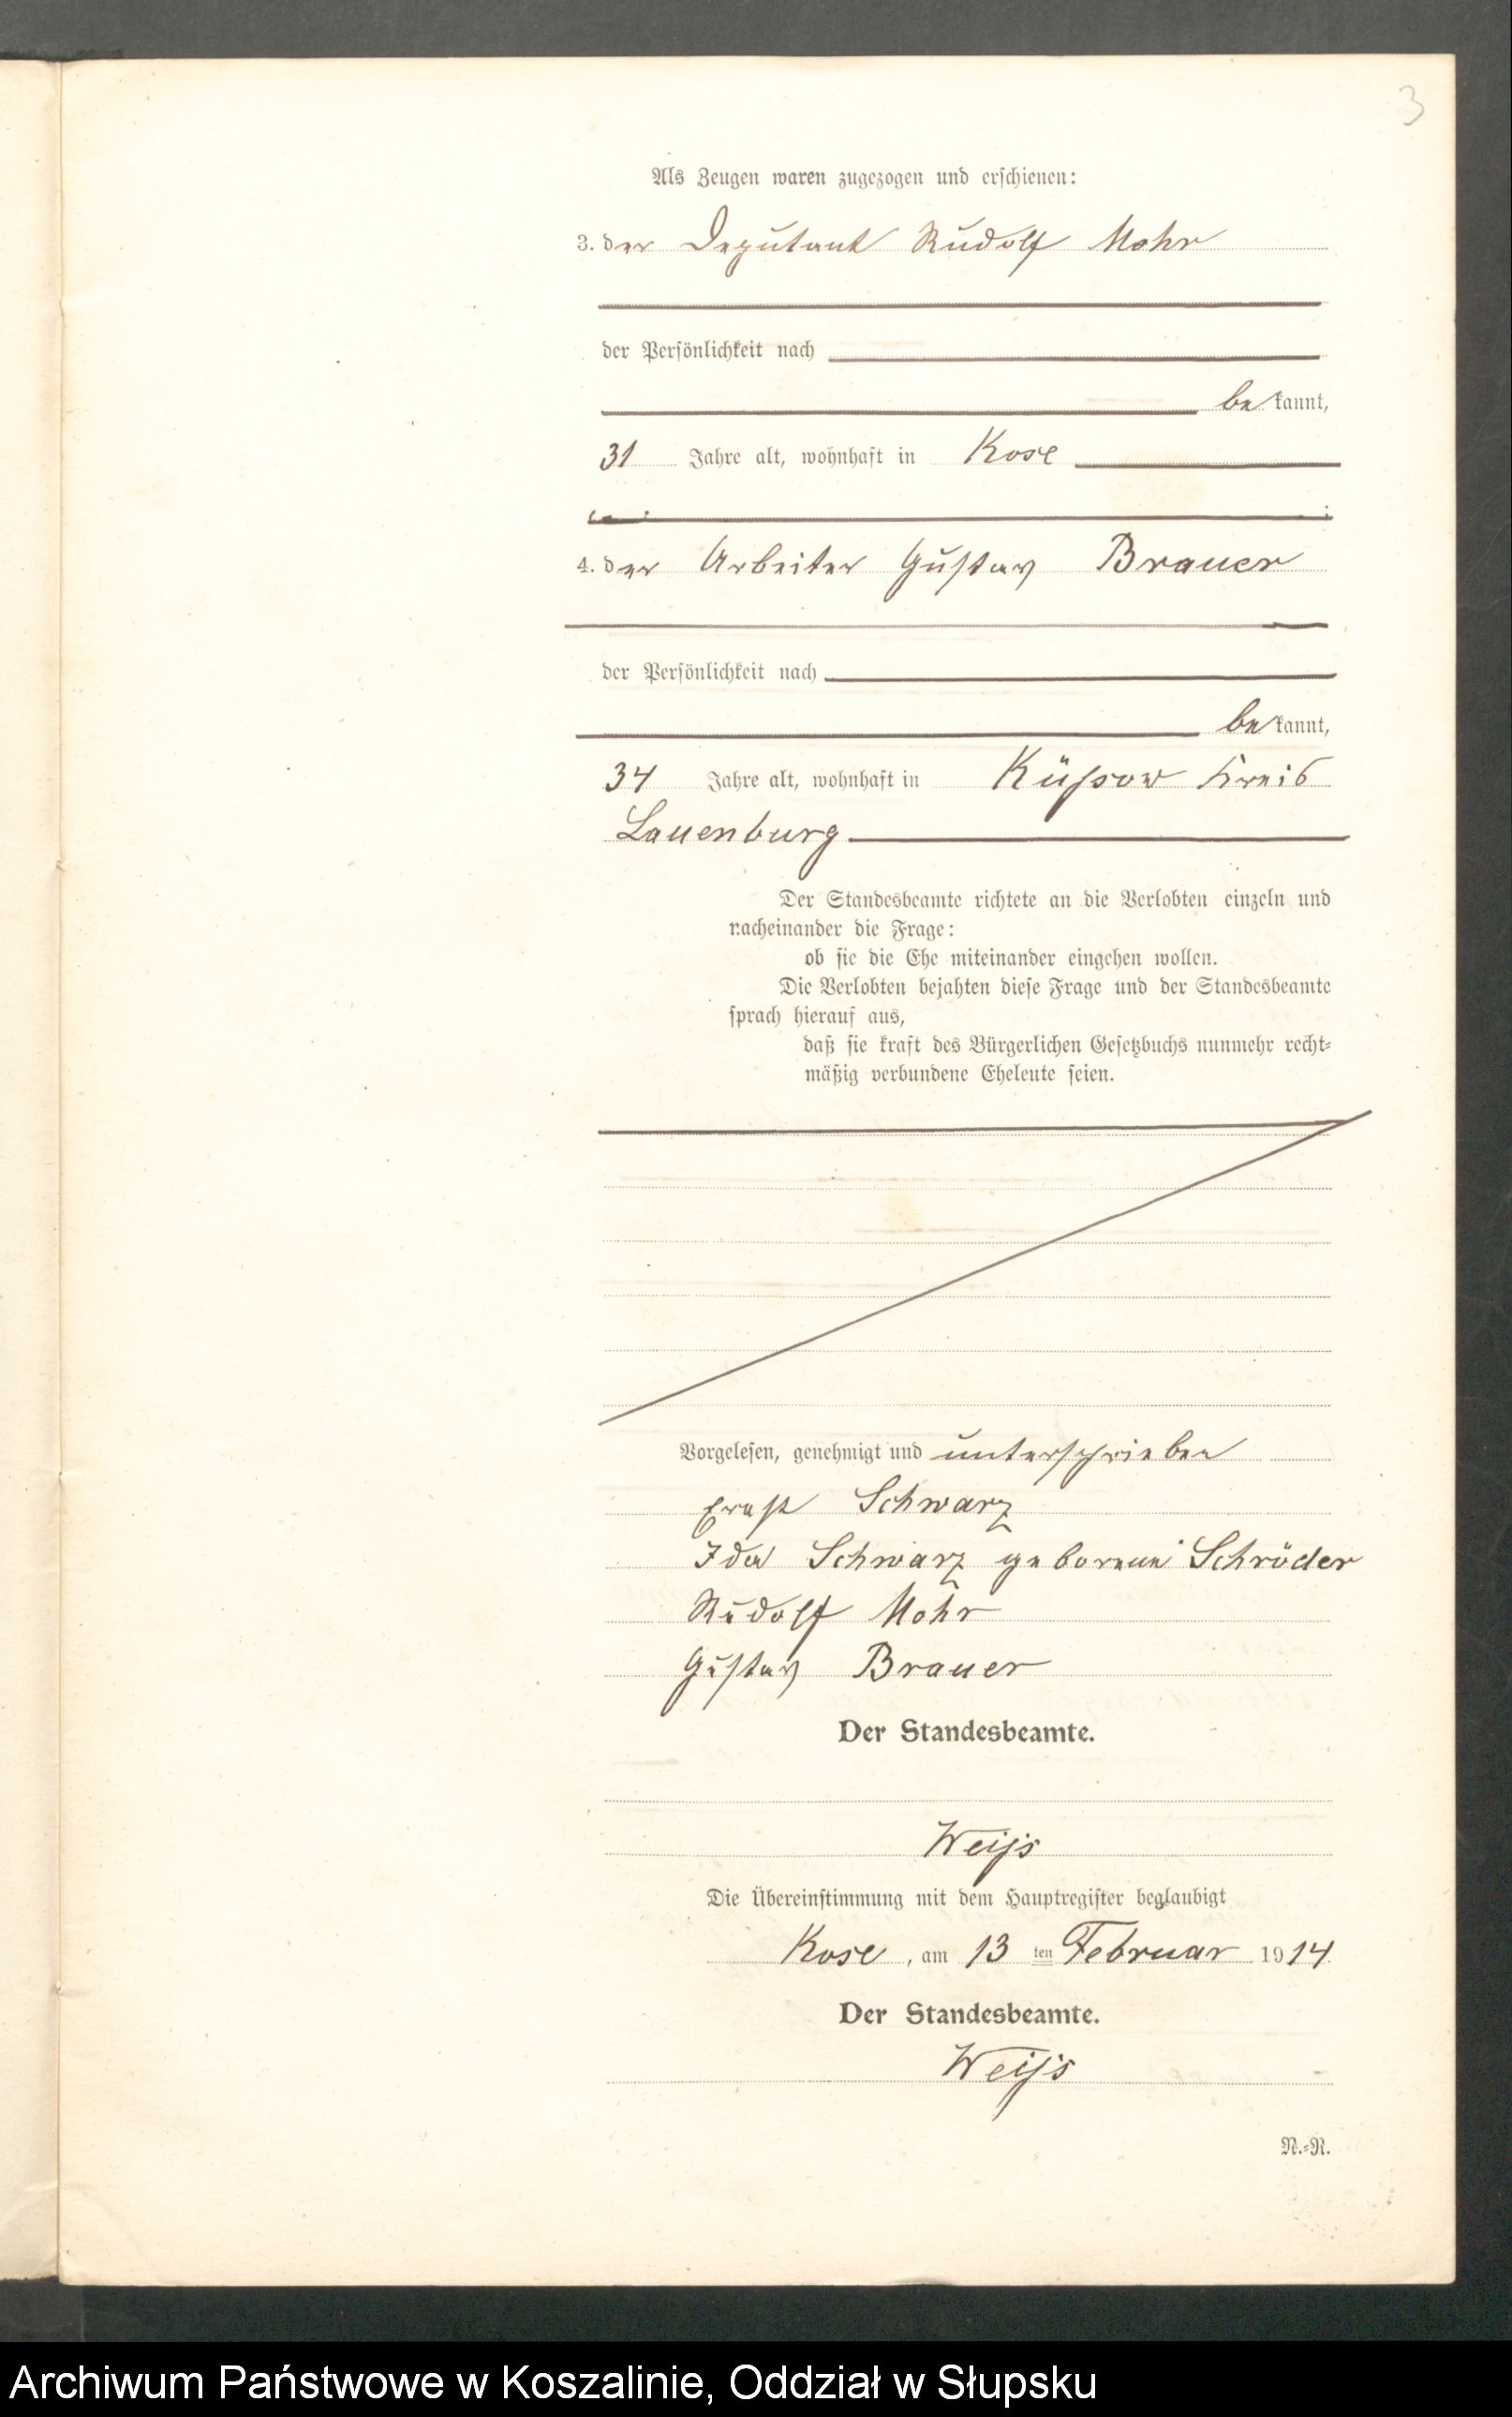 3
Als Zeugen waren zugezogen und erschienen:
3. der Deputant Rudolf Mohr
der Persönlichkeit nach
bekannt,
31 Jahre alt, wohnhaft in Kose
4. der Arbeiter Gustav Brauer
der Persönlichkeit nach
bekannt,
34 Jahre alt, wohnhaft in Küssow Kreis
Lauenburg
Der Standesbeamte richtete an die Verlobten einzeln und
nacheinander die Frage:
ob sie die Ehe miteinander eingehen wollen.
Die Verlobten bejahten diese Frage und der Standesbeamte
sprach hierauf aus,
daß sie kraft des Bürgerlichen Gesetzbuchs nunmehr recht-
mäßig verbundene Eheleute seien.
Vorgelesen, genehmigt und unterschrieben
Ernst Schwarz
Ida Schwarz geborene Schröder
Rudolf Mohr
Gustav Brauer
Der Standesbeamte.
Weiß
Die Übereinstimmung mit dem Hauptregister beglaubigt
Kose, am 13 ten Februar 1914.
Der Standesbeamte.
Weiß
N.-R.
Archiwum Państwowe w Koszalinie, Oddział w Słupsku